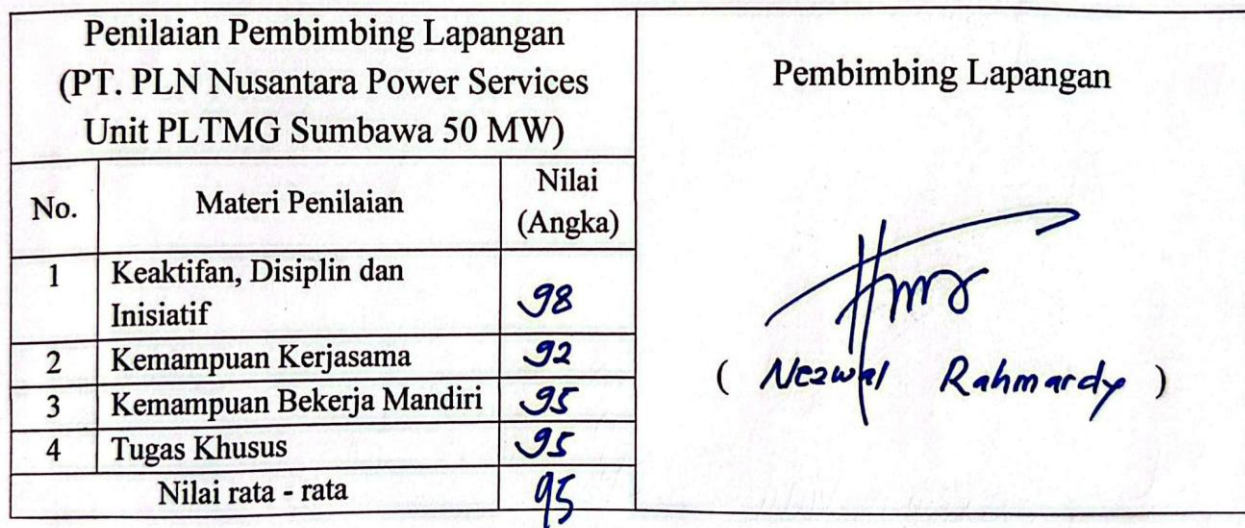 Penilaian Pembimbing Lapangan
(PT. PLN Nusantara Power Services
Unit PLTMG Sumbawa 50 MW)
No.
Materi Penilaian
Nilai
(Angka)
1
Keaktifan, Disiplin dan
Inisiatif
98
2 Kemampuan Kerjasama 92
3 Kemampuan Bekerja Mandiri 95
4 Tugas Khusus 95
Nilai rata - rata 95
Pembimbing Lapangan
( Nezwal Rahmardy )